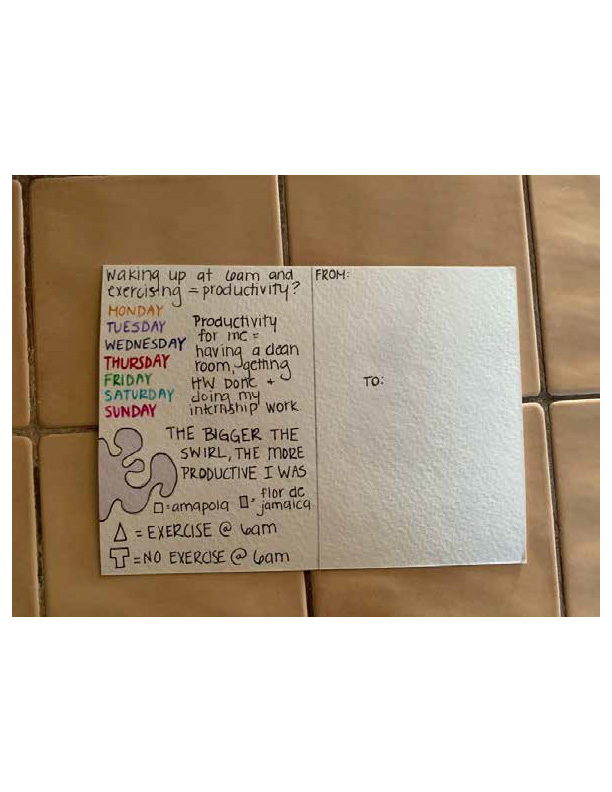 waking up at 6am and
exercising = productivity?
MONDAY
TUESDAY
WEDNESDAY
THURSDAY
FRIDAY
SATURDAY
SUNDAY
Productivity
for me =
having a clean
room, getting
HW done +
doing my
internship work.
THE BIGGER THE
SWIRL, THE MORE
PRODUCTIVE I WAS
=amapola
= flor de
jamaica
= EXERCISE @ 6am
= NO EXERCISE @ 6am
FROM:
TO: